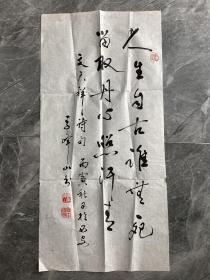 人生自古谁无死
留取丹心照汗青
文天祥诗句 丙寅秋月于西安